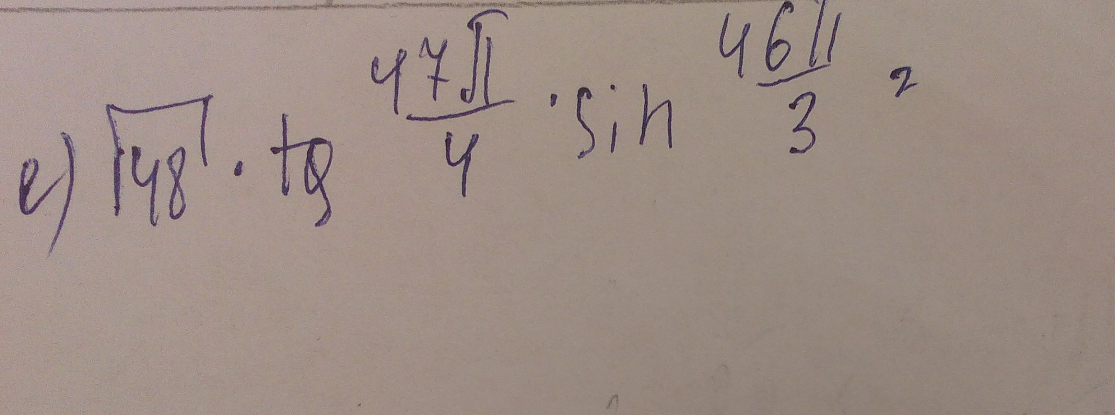 е) √48 · tg 47π/4 · sin 46π/3 =